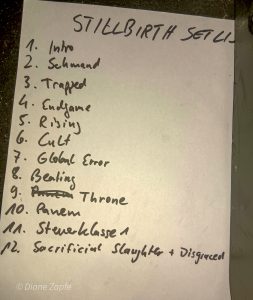 STILLBIRTH SETLI
1. Intro
2. Schmand
3. Trapped
4. Endgame
5. Rising
6. Cult
7. Global Error
8. Beating
9. Panem Throne
10. Panem
11. Steuerklasse 1
12. Sacrificial Slaughter + Disgraced
© Diane Zapfe